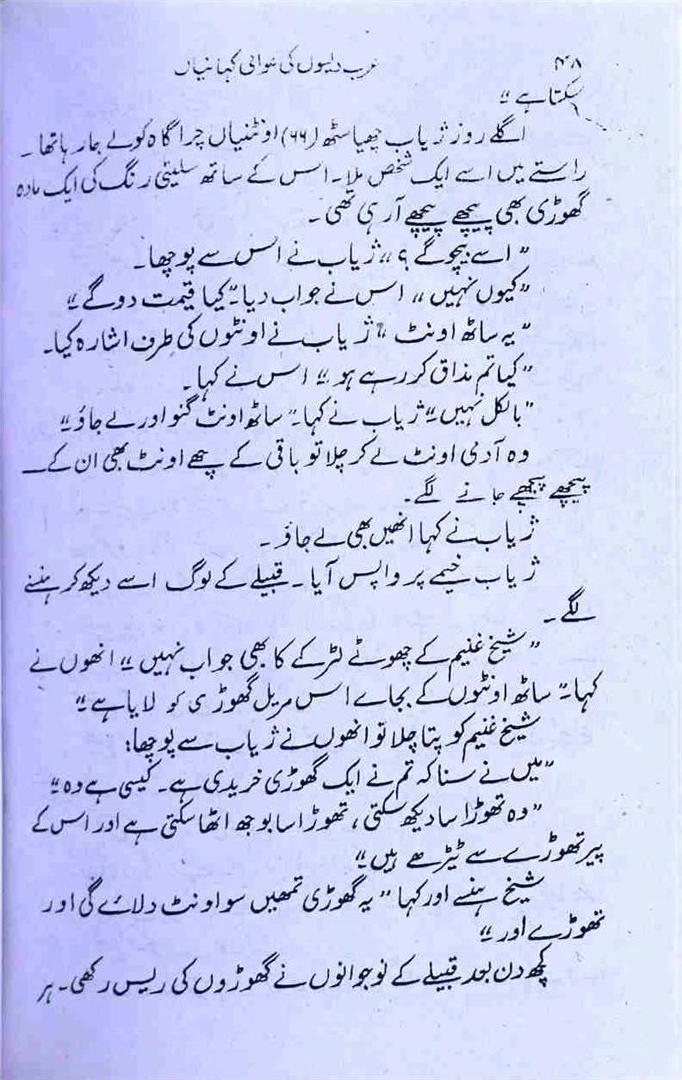 ۴۸ عرب دیسوں کی عوامی کہانیاں
سکتا ہے"
اگلے روز ژیاب چھیاسٹھ (۶۶) اونٹنیاں چراگاہ کو لے جا رہا تھا۔
راستے میں اسے ایک شخص ملا۔ اس کے ساتھ سلیٹی رنگ کی ایک مادہ
گھوڑی بھی پیچھے پیچھے آ رہی تھی۔
"اسے بیچو گے؟" ژیاب نے اس سے پوچھا۔
"کیوں نہیں" اس نے جواب دیا۔ "کیا قیمت دو گے"
"یہ ساٹھ اونٹ" ژیاب نے اونٹوں کی طرف اشارہ کیا۔
"کیا تم مذاق کر رہے ہو" اس نے کہا۔
"بالکل نہیں" ژیاب نے کہا۔ "ساٹھ اونٹ گنو اور لے جاؤ"
وہ آدمی اونٹ لے کر چلا تو باقی کے چھے اونٹ بھی ان کے
پیچھے پیچھے جانے لگے۔
ژیاب نے کہا انھیں بھی لے جاؤ۔
ژیاب خیمے پر واپس آیا۔ قبیلے کے لوگ اسے دیکھ کر ہنسنے
لگے۔
"شیخ غنیم کے چھوٹے لڑکے کا بھی جواب نہیں" انھوں نے
کہا۔ "ساٹھ اونٹوں کے بجاے اس مریل گھوڑی کو لایا ہے"
شیخ غنیم کو پتا چلا تو انھوں نے ژیاب سے پوچھا:
"میں نے سنا کہ تم نے ایک گھوڑی خریدی ہے۔ کیسی ہے وہ"
"وہ تھوڑا سا دیکھ سکتی، تھوڑا سا بوجھ اٹھا سکتی ہے اور اس کے
پیر تھوڑے سے ٹیڑھے ہیں"
شیخ ہنسے اور کہا "یہ گھوڑی تمھیں سو اونٹ دلائے گی اور
تھوڑے اور"
کچھ دن بعد قبیلے کے نوجوانوں نے گھوڑوں کی ریس رکھی۔ ہر